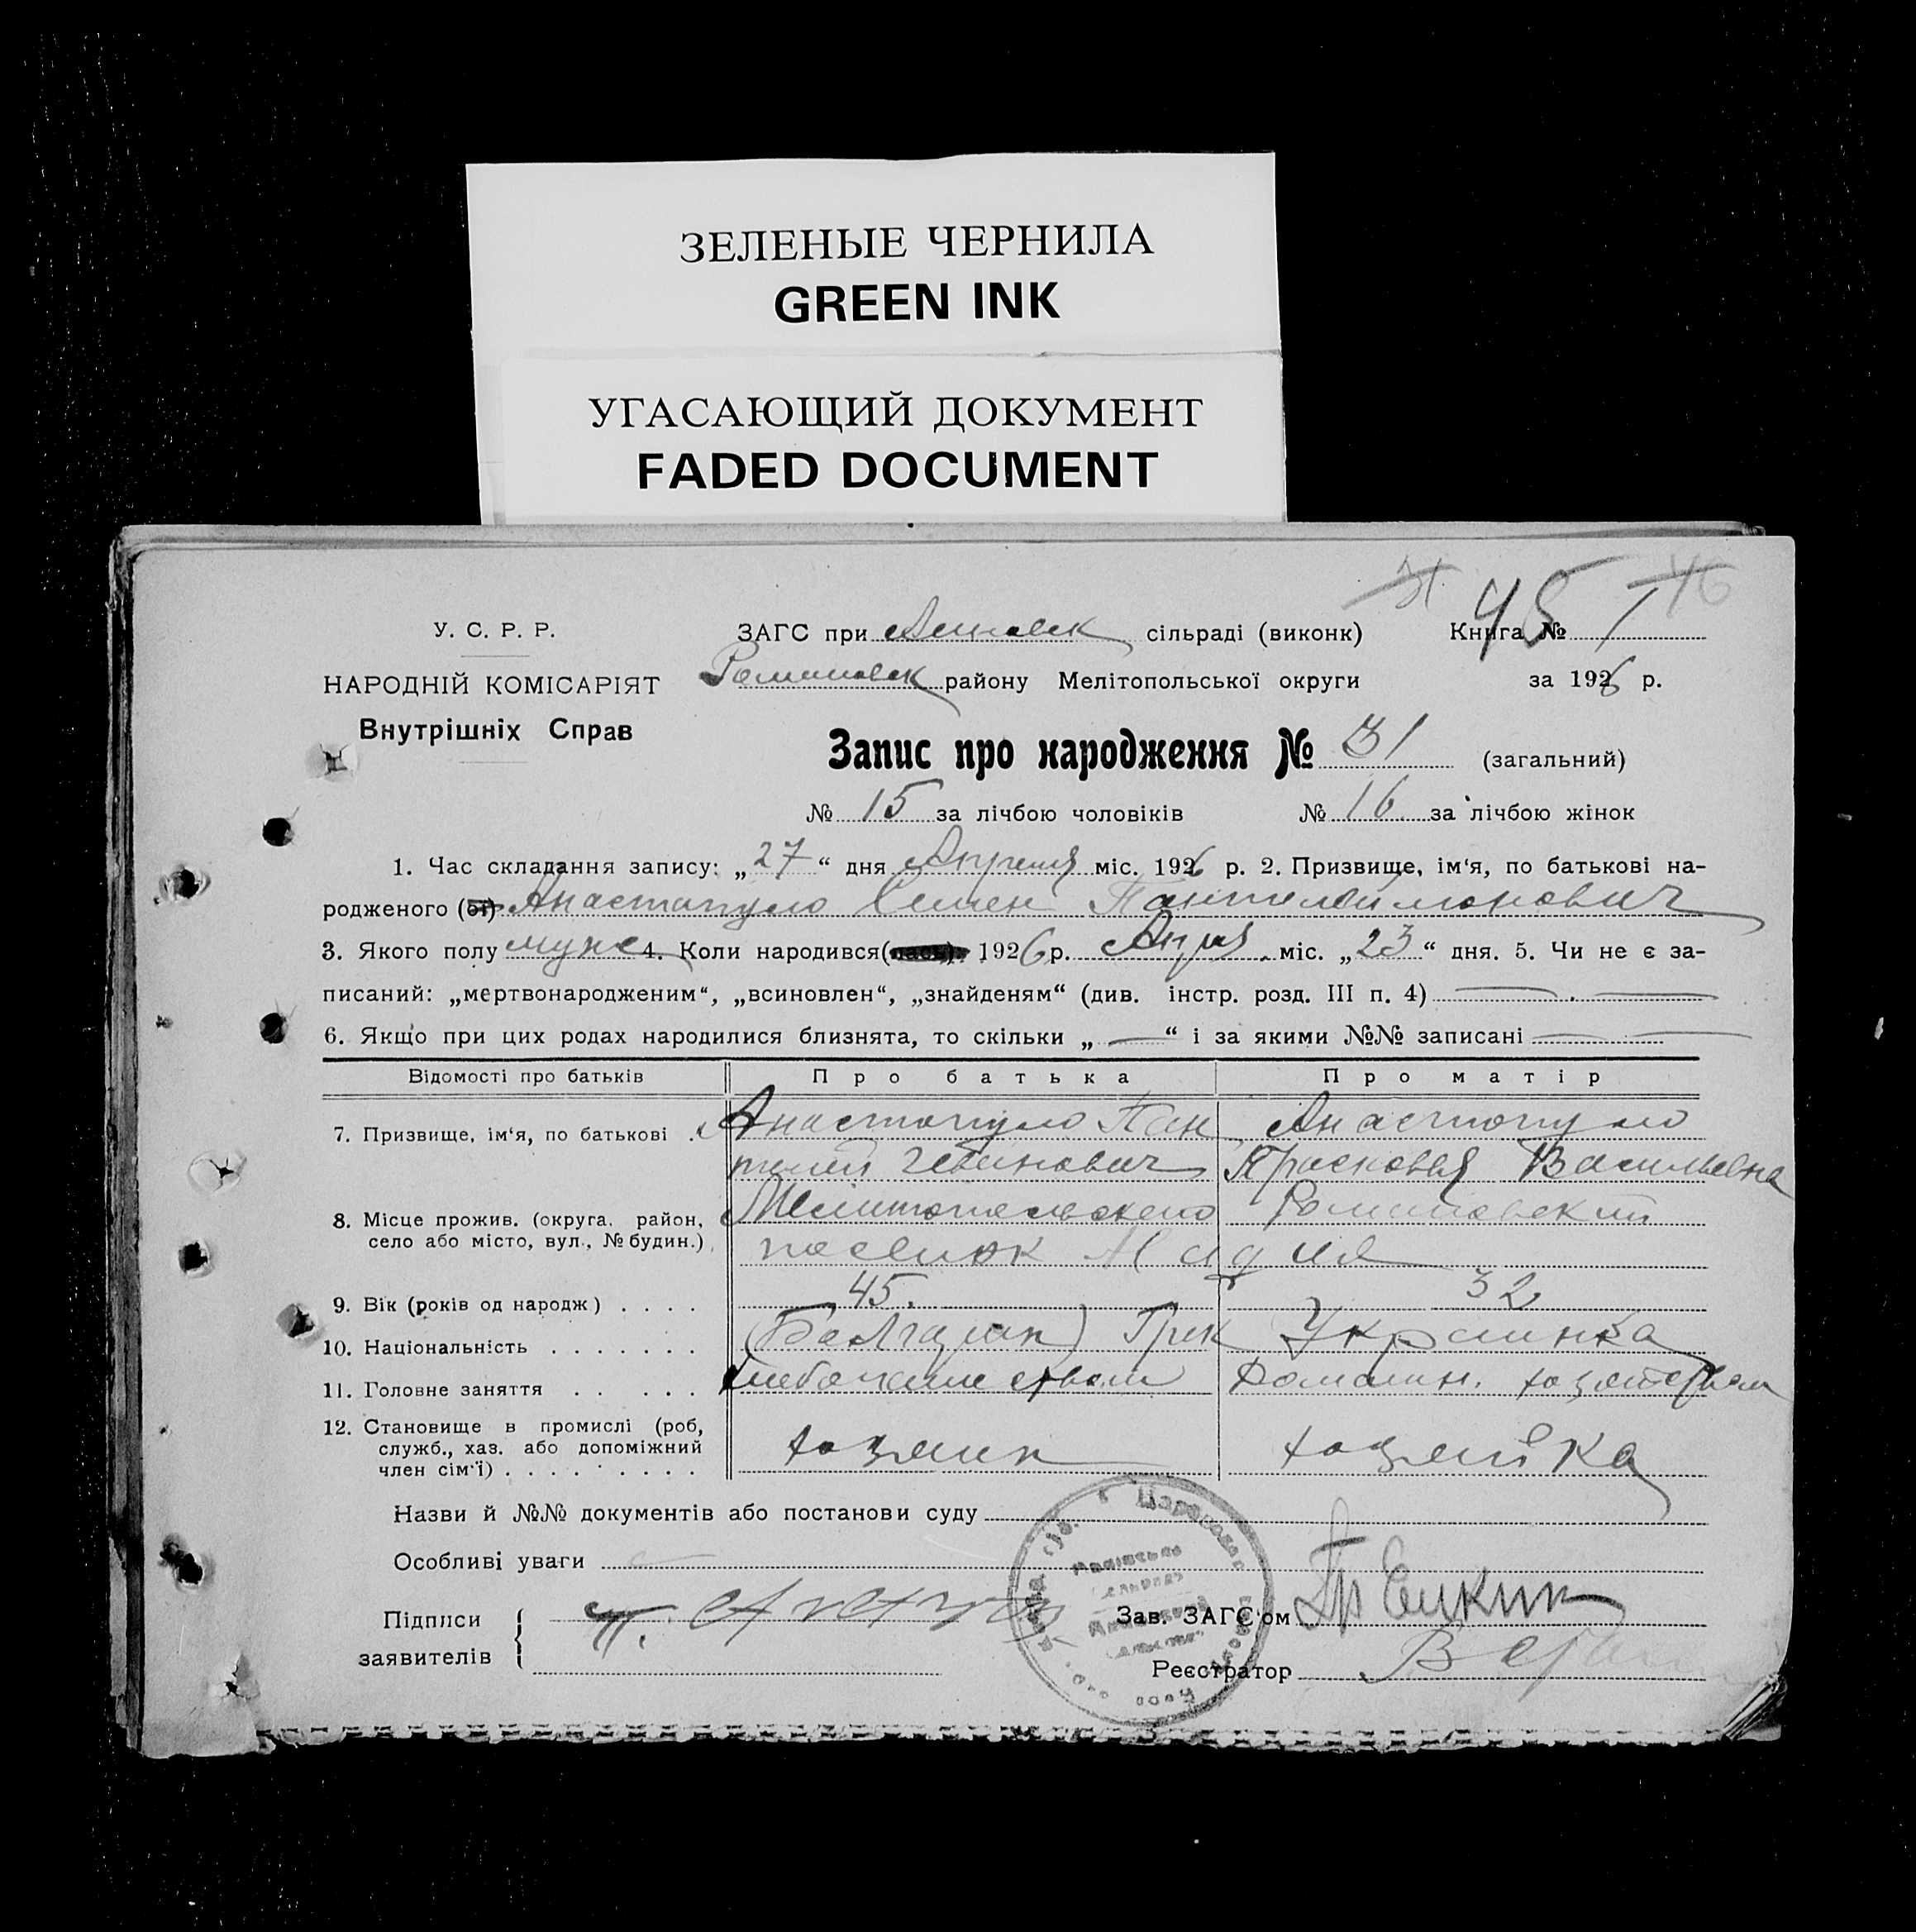 ЗЕЛЕНЫЕ ЧЕРНИЛА
GREEN INK
УГАСАЮЩИЙ ДОКУМЕНТ
FADED DOCUMENT
31 45 46
У. С. Р. Р.
ЗАГС при сільраді (виконк) Книга № 1
НАРОДНІЙ КОМІСАРІЯТ
району Мелітопольської округи за 1926 р.
Внутрішніх Справ
Запис про народження № 31 (загальний)
№ 15 за лічбою чоловіків № 16 за лічбою жінок
1. Час складання запису: „27“ дня Апреля міс. 1926 р. 2. Призвище, ім‘я, по батькові на-
родженого (ої) Анастопуло Семен Пантелеймонович
3. Якого полу муж 4. Коли народився 1926 р. Апрля міс. „23“ дня. 5. Чи не є за-
писаний: „мертвонародженим“, „всиновлен“, „знайденям“ (див. інстр. розд. III п. 4)
6. Якщо при цих родах народилися близнята, то скільки „ — “ і за якими №№ записані
Відомості про батьків Про батька Про матір
7. Призвище, ім‘я, по батькові Анастопуло Пан Анастопуло
Прасковья Васильевна
8. Місце прожив. (округа, район, Мелитопольского
село або місто, вул., № будин.) поселок
9. Вік (років од народж) 45. 32
10. Національність Грек Украинка
11. Головне заняття хлебопашеством Домашн. хозяством
12. Становище в промислі (роб, служб., хаз. або допоміжний член сім‘ї) хозяин хозяйка
Назви й №№ документів або постанови суду
Особливі уваги
Підписи
заявителів
Зав. ЗАГС‘ом
Реєстратор